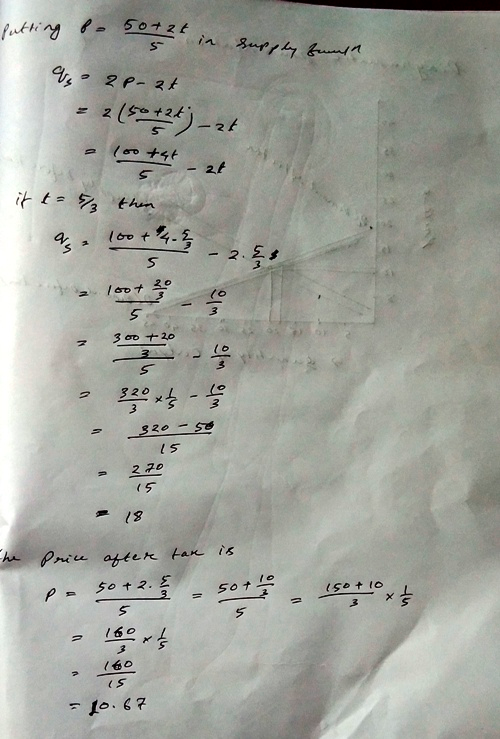 Putting P = (50+2t)/5 in supply funn
qs = 2P - 2t
= 2((50+2t)/5) - 2t
= (100+4t)/5 - 2t
if t = 5/3 then
qs = (100 + 4·5/3)/5 - 2·5/3
= (100 + 20/3)/5 - 10/3
= ((300+20)/3)/5 - 10/3
= 320/3 × 1/5 - 10/3
= (320 - 50)/15
= 270/15
= 18
The Price after tax is
P = (50 + 2·5/3)/5 = (50 + 10/3)/5 = (150+10)/3 × 1/5
= 160/3 × 1/5
= 160/15
= 10.67